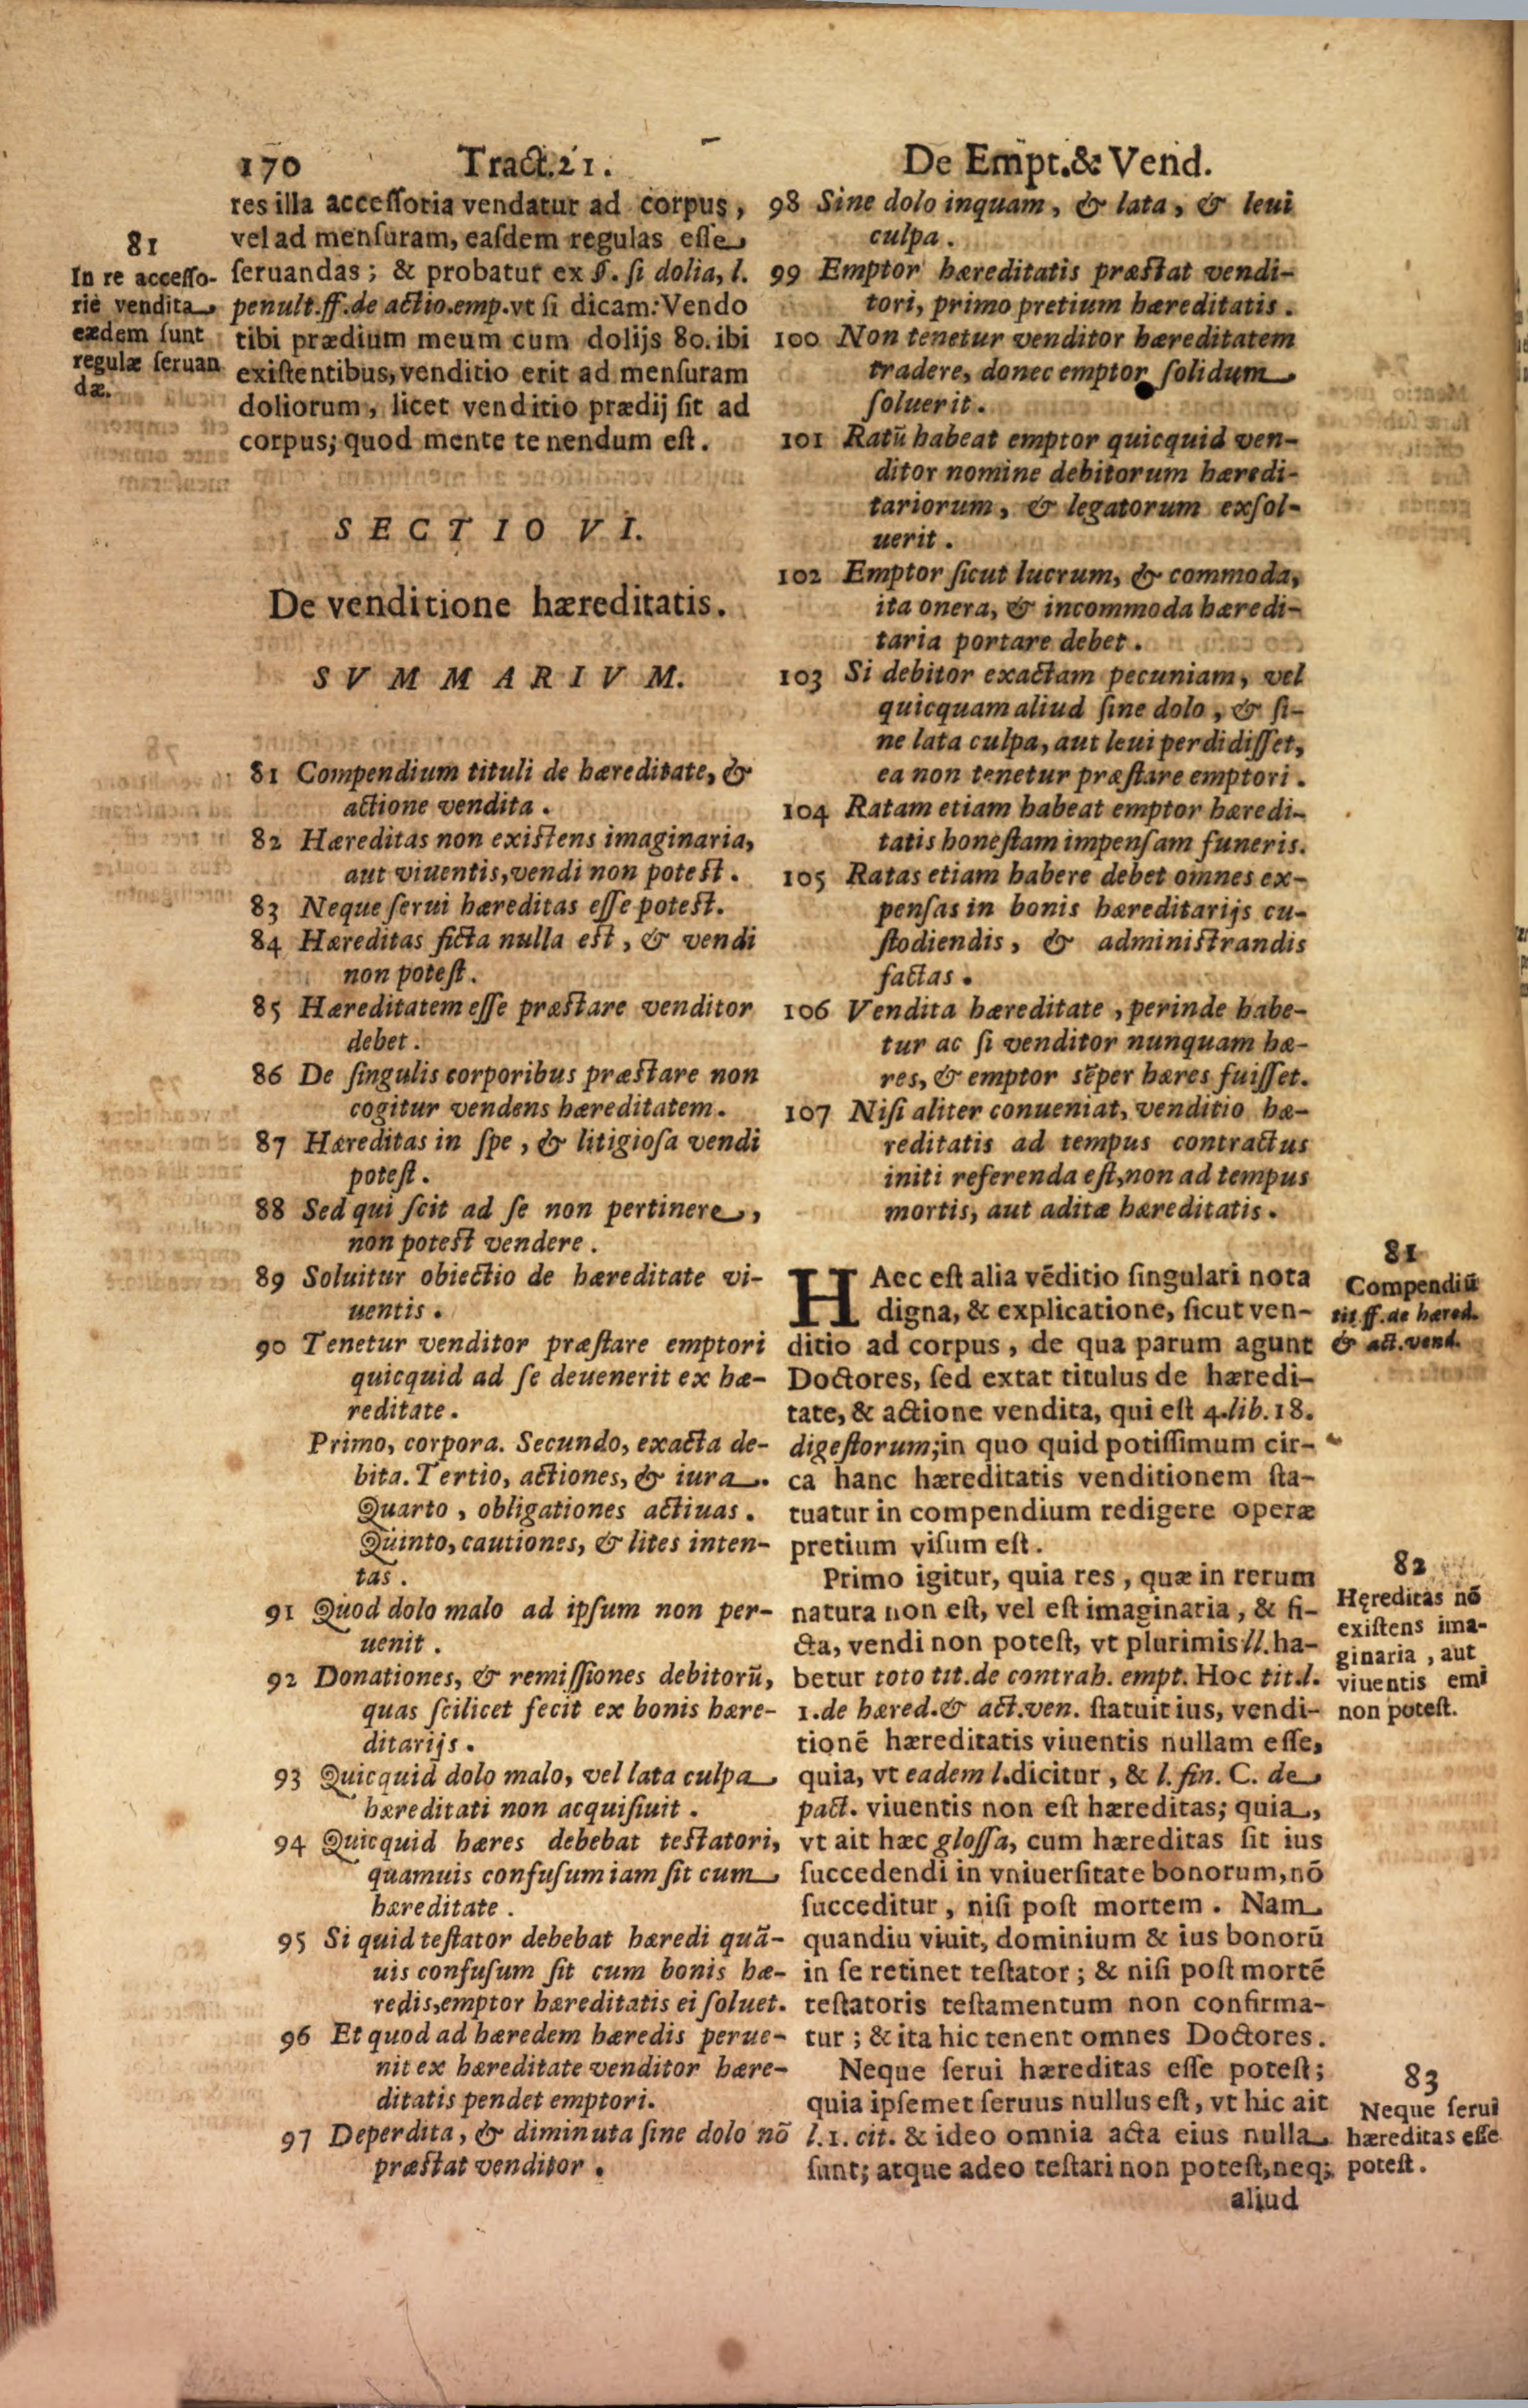 170 Tract.21. De Empt.& Vend.
res illa accessoria vendatur ad corpus,
vel ad mensuram, easdem regulas esse
seruandas; & probatur ex §. si dolia, l.
penult.ff.de actio.emp.vt si dicam: Vendo
tibi prædium meum cum dolijs 80. ibi
existentibus, venditio erit ad mensuram
doliorum, licet venditio prædij sit ad
corpus; quod mente tenendum est.
81
In re accesso-
riè vendita
eædem sunt
regulæ seruan
dæ.
SECTIO VI.
De venditione hæreditatis.
SVMMARIVM.
81 Compendium tituli de hæreditate, &
actione vendita.
82 Hæreditas non existens imaginaria,
aut viuentis, vendi non potest.
83 Neque serui hæreditas esse potest.
84 Hæreditas ficta nulla est, & vendi
non potest.
85 Hæreditatem esse præstare venditor
debet.
86 De singulis corporibus præstare non
cogitur vendens hæreditatem.
87 Hæreditas in spe, & litigiosa vendi
potest.
88 Sed qui scit ad se non pertinere,
non potest vendere.
89 Soluitur obiectio de hæreditate vi-
uentis.
90 Tenetur venditor præstare emptori
quicquid ad se deuenerit ex hæ-
reditate.
Primo, corpora. Secundo, exacta de-
bita. Tertio, actiones, & iura.
Quarto, obligationes actiuas.
Quinto, cautiones, & lites inten-
tas.
91 Quod dolo malo ad ipsum non per-
uenit.
92 Donationes, & remissiones debitorũ,
quas scilicet fecit ex bonis hære-
ditarijs.
93 Quicquid dolo malo, vel lata culpa
hæreditati non acquisiuit.
94 Quicquid hæres debebat testatori,
quamuis confusum iam sit cum
hæreditate.
95 Si quid testator debebat hæredi quã-
uis confusum sit cum bonis hæ-
redis, emptor hæreditatis ei soluet.
96 Et quod ad hæredem hæredis perue-
nit ex hæreditate venditor hære-
ditatis pendet emptori.
97 Deperdita, & diminuta sine dolo nõ
præstat venditor.
98 Sine dolo inquam, & lata, & leui
culpa.
99 Emptor hæreditatis præstat vendi-
tori, primo pretium hæreditatis.
100 Non tenetur venditor hæreditatem
tradere, donec emptor solidum
soluerit.
101 Ratũ habeat emptor quicquid ven-
ditor nomine debitorum hæredi-
tariorum, & legatorum exsol-
uerit.
102 Emptor sicut lucrum, & commoda,
ita onera, & incommoda hæredi-
taria portare debet.
103 Si debitor exactam pecuniam, vel
quicquam aliud sine dolo, & si-
ne lata culpa, aut leui perdidisset,
ea non tenetur præstare emptori.
104 Ratam etiam habeat emptor hæredi-
tatis honestam impensam funeris.
105 Ratas etiam habere debet omnes ex-
pensas in bonis hæreditarijs cu-
stodiendis, & administrandis
factas.
106 Vendita hæreditate, perinde habe-
tur ac si venditor nunquam hæ-
res, & emptor sẽper hæres fuisset.
107 Nisi aliter conueniat, venditio hæ-
reditatis ad tempus contractus
initi referenda est, non ad tempus
mortis, aut aditæ hæreditatis.
HAec est alia vẽditio singulari nota
digna, & explicatione, sicut ven-
ditio ad corpus, de qua parum agunt
Doctores, sed extat titulus de hæredi-
tate, & actione vendita, qui est 4.lib.18.
digestorum; in quo quid potissimum cir-
ca hanc hæreditatis venditionem sta-
tuatur in compendium redigere operæ
pretium visum est.
Primo igitur, quia res, quæ in rerum
natura non est, vel est imaginaria, & fi-
cta, vendi non potest, vt plurimis ll. ha-
betur toto tit.de contrah. empt. Hoc tit.l.
1.de hæred.& act.ven. statuit ius, vendi-
tionẽ hæreditatis viuentis nullam esse,
quia, vt eadem l.dicitur, & l. fin. C. de
pact. viuentis non est hæreditas; quia,
vt ait hæc glossa, cum hæreditas sit ius
succedendi in vniuersitate bonorum, nõ
succeditur, nisi post mortem. Nam
quandiu viuit, dominium & ius bonorũ
in se retinet testator; & nisi post mortẽ
testatoris testamentum non confirma-
tur; & ita hic tenent omnes Doctores.
Neque serui hæreditas esse potest;
quia ipsemet seruus nullus est, vt hic ait
l.1. cit. & ideo omnia acta eius nulla
sunt; atque adeo testari non potest, neq;
aliud
81
Compendiũ
tit ff.de hæred.
& act.vend.
82
Hęreditas nõ
existens ima-
ginaria, aut
viuentis emi
non potest.
83
Neque serui
hæreditas esse
potest.